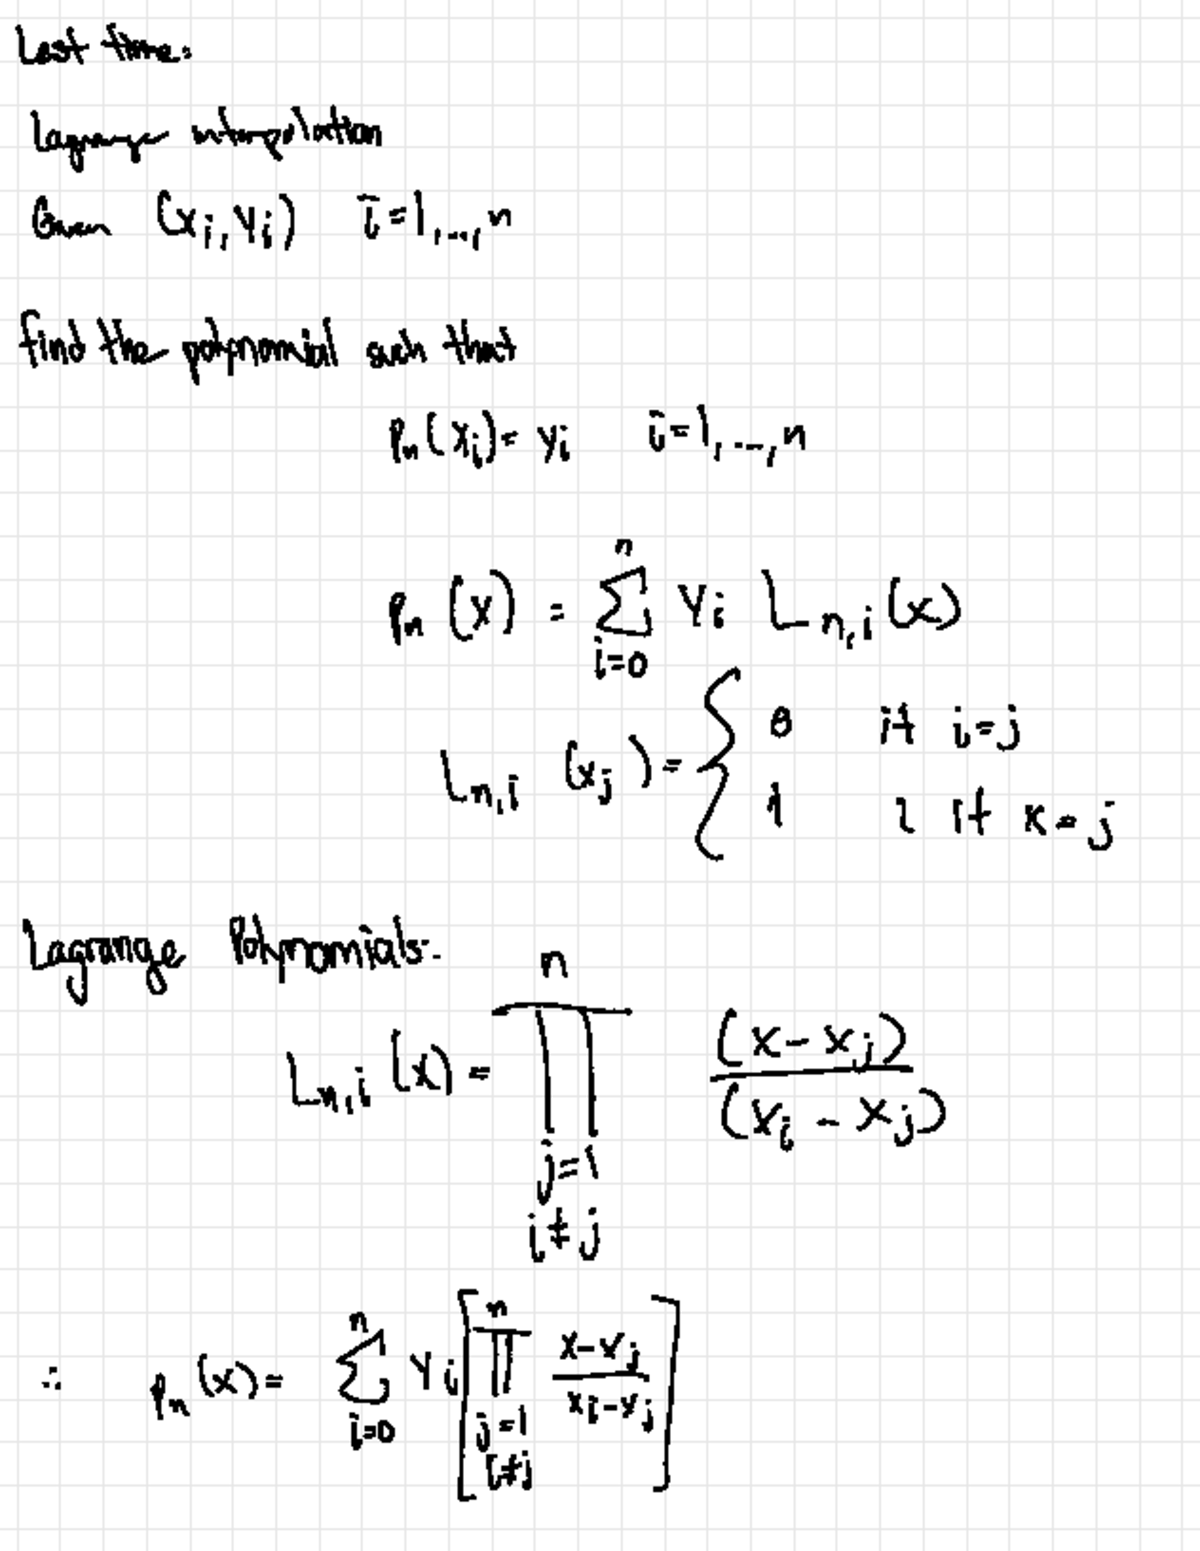 Last time:
Lagrange interpolation
Given (xᵢ, yᵢ) i=1,...,n
find the polynomial such that
Pₙ(xᵢ) = yᵢ i=1,...,n
Pₙ(x) = ∑_{i=0}^{n} yᵢ L_{n,i}(x)
L_{n,i}(xⱼ) = { 0 if i=j
1 if x=j
Lagrange Polynomials:
L_{n,i}(x) = ∏_{j=1, i≠j}^{n} (x-xⱼ)/(xᵢ-xⱼ)
∴ Pₙ(x) = ∑_{i=0}^{n} yᵢ [ ∏_{j=1, i≠j}^{n} (x-xⱼ)/(xᵢ-xⱼ) ]